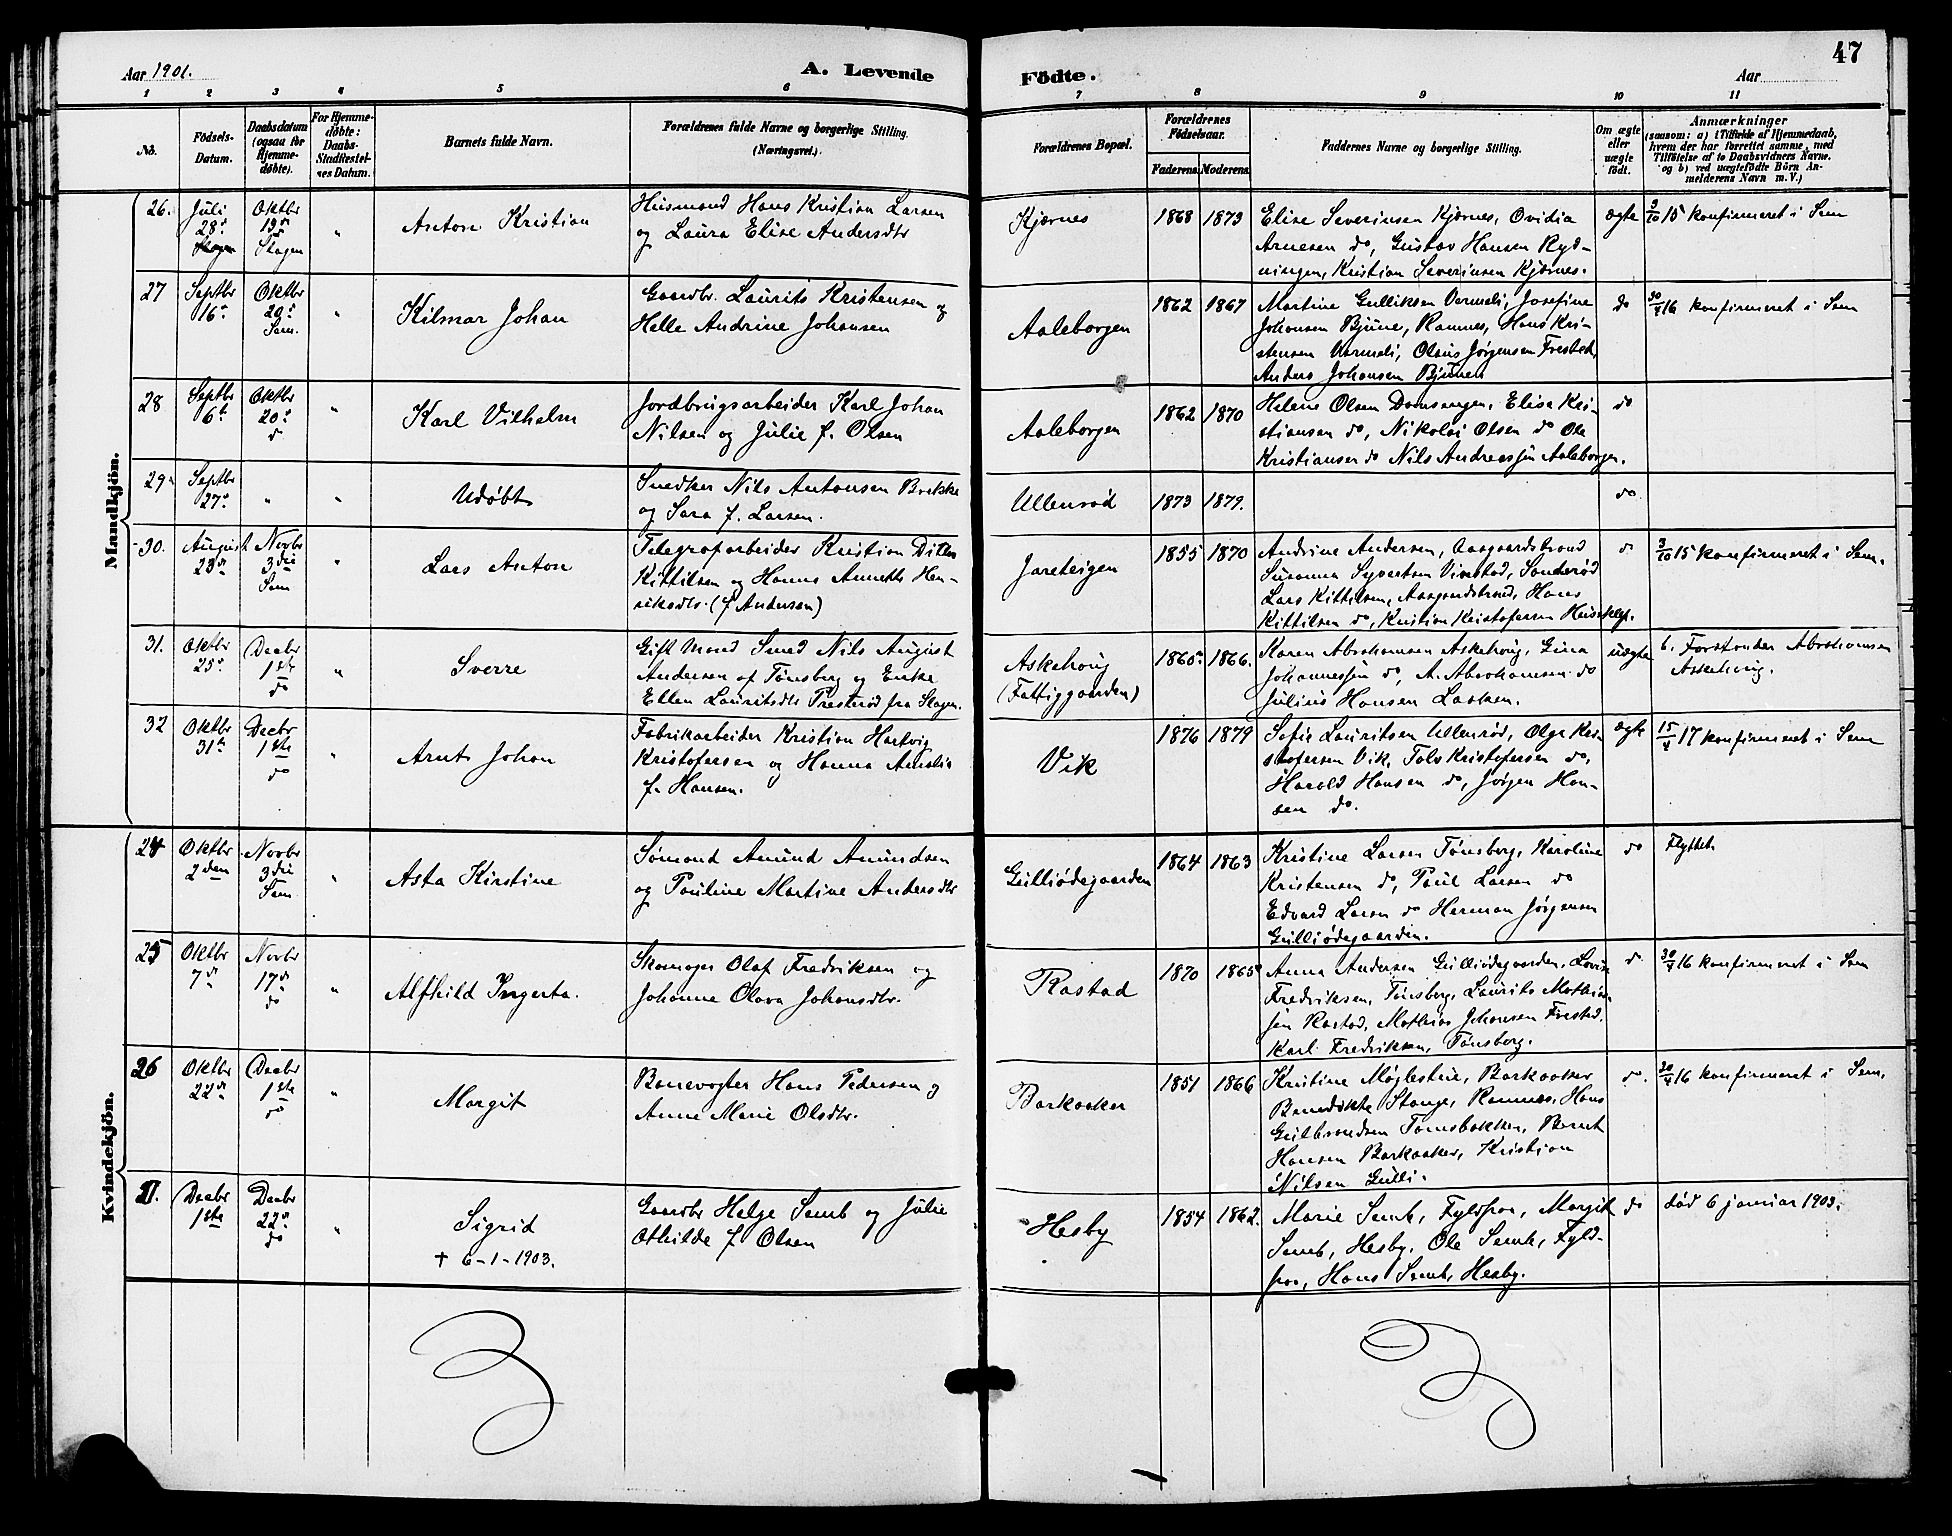 47
Aar 1901.
A. Levende Födte.
Aar
1 2 3 4 5 6 7 8 9 10 11
No.
Födsels-Datum.
Daabsdatum (ogsaa for Hjemme-döbte).
For Hjemme-döbte: Daabs-Stadfæstel-ses Datum.
Barnets fulde Navn.
Forældrenes fulde Navne og borgerlige Stilling. (Næringsvei.)
Forældrenes Bopæl.
Forældrenes Födselsaar.
Faderens. Moderens.
Faddernes Navne og borgerlige Stilling.
Om ægte eller uægte födt.
Anmærkninger
(saasom: a) i Tilfælde af Hjemmedaab,
hvem der har forrettet samme, med
Tilföielse af to Daabsvidners Navne.
og b) ved uægtefödte Börn An-
melderens Navn m.V.)
Mandkjön.
26. Juli 28de Oktbr 13de Slagen " Anton Kristian
Husmand Hans Kristian Larsen
og Laura Elise Andersdtr
Kjærnes 1868 1873
Elise Severinsen Kjærnes, Ovidia
Arnesen do, Gustav Hansen Ryd-
ningen, Kristian Severinsen Kjærnes.
ægte 3/10 15 konfirmeret i Sem
27 Septbr 16de Oktbr 20de Sem. " Hilmar Johan
Gaardbr. Laurits Kristensen og
Helle Andrine Johansen
Aaleborgen 1862 1867
Martine Gulliksen Vermeli, Josefine
Johansen Bjune, Ramnes, Hans Kri-
stensen Vermeli, Olaus Jørgensen Frestad,
Anders Johansen Bjunen
do 30/4 16 konfirmeret i Sem
28 Septbr 6te Oktbr 20de do " Karl Vilhelm
Jordbrugsarbeider Karl Johan
Nilsen og Julie f. Olsen
Aaleborgen 1862 1870
Helene Olsen Domsengen, Elise Kri-
stiansen do, Nikolai Olsen do Ole
Kristiansen do Nils Andreassen Aaleborgen.
do
29 Septbr 27de " " Udøbt
Snedker Nils Antonsen Brekke
og Sara f. Larsen.
Ullenrød 1873 1879.
do
30. August 23de Novbr 3die Sem " Lars Anton
Telegrafarbeider Kristian Ditlev
Kittilsen og Hanna Annette Hen-
riksdtr. (f. Andersen)
Jareteigen 1855 1870
Andrine Andersen, Aasgaardstrand
Susanna Syvertsen Vivestad, Sanderød
Lars Kittilsen, Aasgaardstrand, Hans
Kittilsen do, Kristian Kristofersen Huseklep.
do 3/10 15 konfirmeret i Sem.
31. Oktbr 25de Decbr 1ste do " Sverre
Gift Mand Smed Nils August
Andersen af Tønsberg og Enke
Ellen Lauritsdtr Presterød fra Slagen.
Askehoug (Fattiggaarden) 1860 1866.
Karen Abrahamsen Askehoug, Gina
Johannessen do, A. Abrahamsen do
Julius Hansen Lasken.
uægte b. Forstander Abrahamsen
Askehoug.
32 Oktbr 31te Decbr 1ste do " Arnt Johan
Fabrikarbeider Kristian Hartvig
Kristofersen og Hanna Amalie
f. Hansen.
Vik 1876 1879
Sofie Lauritsen Ullenrød, Olga Kri-
stofersen Vik, Tolv Kristofersen do,
Harald Hansen do, Jørgen Han-
sen do.
ægte 15/4 17 konfirmeret i Sem
Kvindekjön.
24 Oktbr 2den Novbr 3die Sem " Asta Kirstine
Sømand Amund Amundsen
og Pauline Martine Andersdtr
Gulliødegaarden 1864 1863
Kristine Larsen Tønsberg, Karoline
Kristensen do, Paul Larsen do
Edvard Larsen do Herman Jørgensen
Gulliødegaarden.
do Flyttet
25 Oktbr 7de Novbr 17de do " Alfhild Ingerta.
Skomager Olaf Fredriksen og
Johanne Olava Johansdtr.
Rastad 1870 1865
Anna Andersen Gulliødegaarden, Lovise
Fredriksen, Tønsberg, Laurits Mathias-
sen Rastad, Mathias Johansen Frestad,
Karl Fredriksen, Tønsberg.
do 30/4 16 konfirmeret i Sem
26 Oktbr 22de Decbr 1ste do " Margit
Banevogter Hans Pedersen og
Anne Marie Olsdtr.
Barkaaker 1851 1866
Kristine Møglestue, Barkaaker
Benedikte Stange, Ramnes, Hans
Gulbrandsen Tømsbakken, Bernt
Hansen Barkaaker, Kristian
Nilsen Gulli.
do. 30/4 16 konfirmeret i Sem.
27. Decbr 1ste Decbr 22de do " Sigrid
† 6-1-1903.
Gaardbr Helge Semb og Julie
Othilde f Olsen
Hesby 1854 1862.
Marie Semb, Fyldpaa, Margit
Semb, Hesby, Ole Semb, Fyld-
paa, Hans Semb, Hesby.
do død 6 januar 1903.